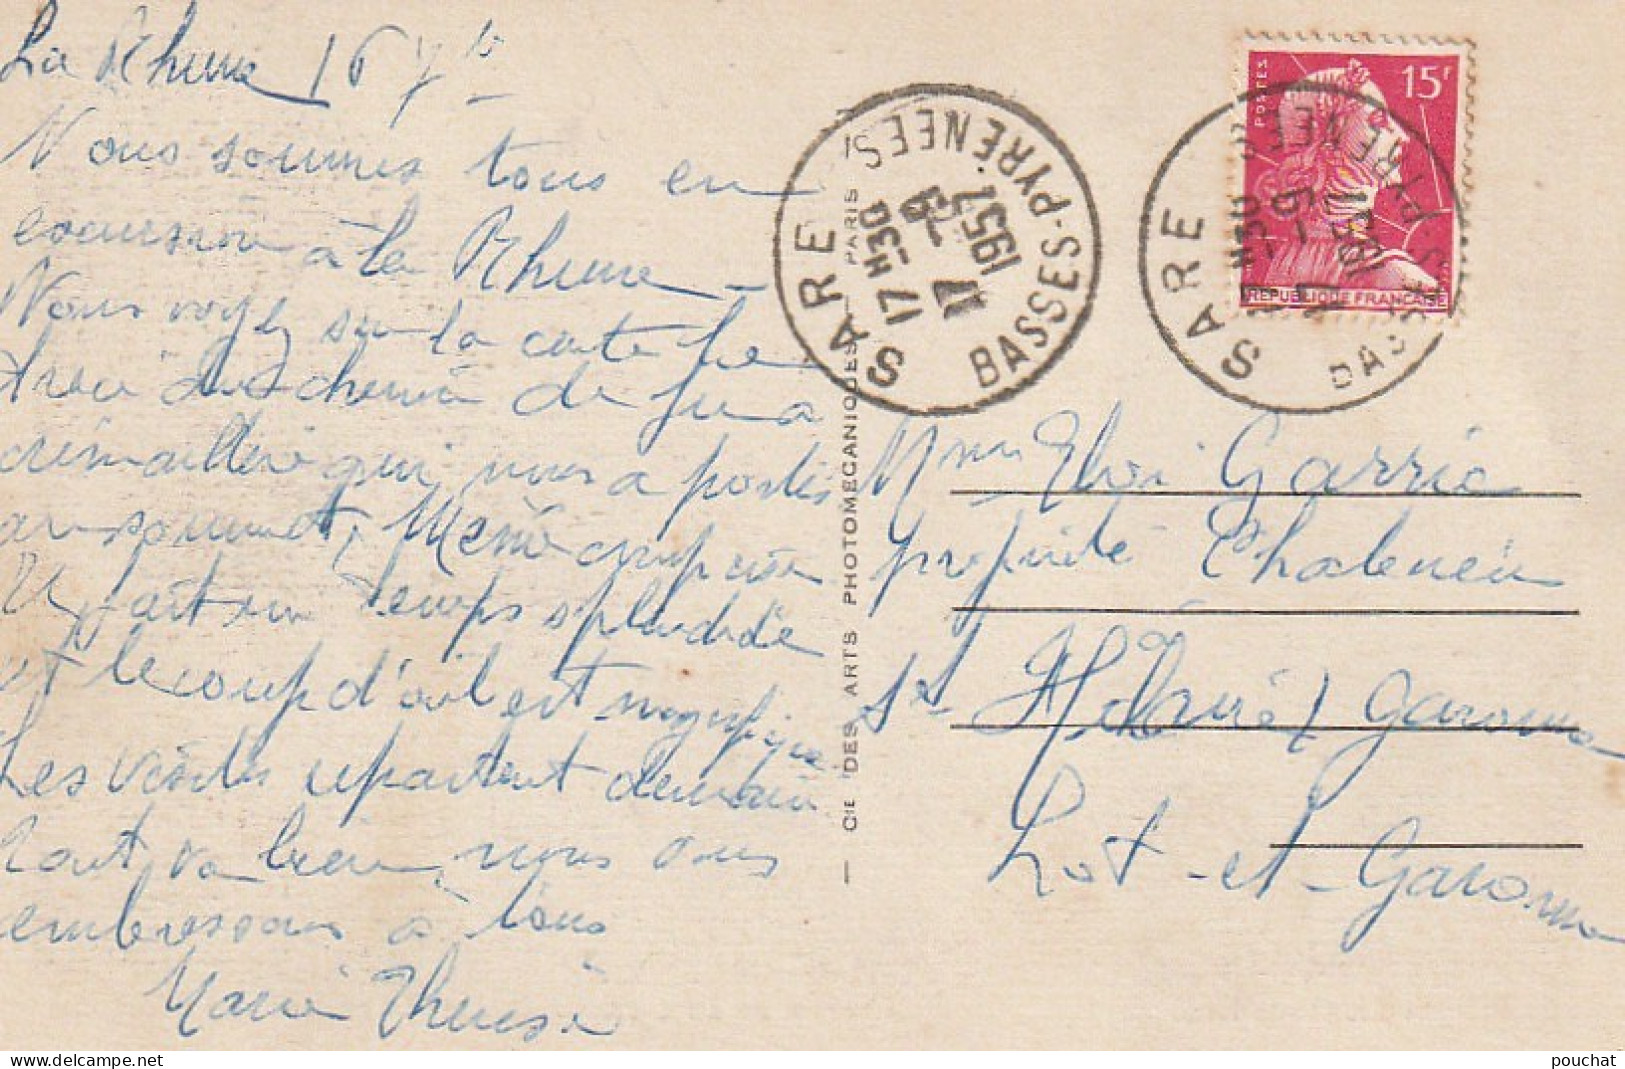 La Rhune 16 7bre
Nous sommes tous en
excursion à la Rhune -
Vous voyez sur la carte le
tracé du chemin de fer à
crémaillère qui nous a portés
au sommet. Mémé
Il fait un temps splendide
et le coup d'œil est magnifique
Les visites repartent demain
Tout va bien, nous vous
embrassons à tous
Marie Thérèse
— CIE DES ARTS PHOTOMECANIQUES — PARIS
SARE
BASSES-PYRÉNÉES
17 H30
17 -9
1957
SARE
BASSES-PYRÉNÉES
POSTES
15F
REPUBLIQUE FRANÇAISE
Mme Eloi Garric
propriété
St Garonne
Lot-et-Garonne
pouchat
delcampe.net